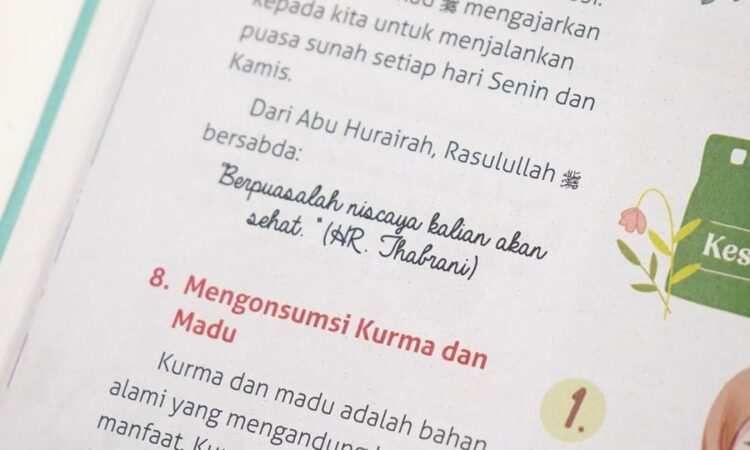 ﷺ mengajarkan
kepada kita untuk menjalankan
puasa sunah setiap hari Senin dan
Kamis.
Dari Abu Hurairah, Rasulullah ﷺ
bersabda:
"Berpuasalah niscaya kalian akan
sehat. "(HR. Thabrani)
8. Mengonsumsi Kurma dan
Madu
Kurma dan madu adalah bahan
alami yang mengandung
manfaat.
Kes
1.